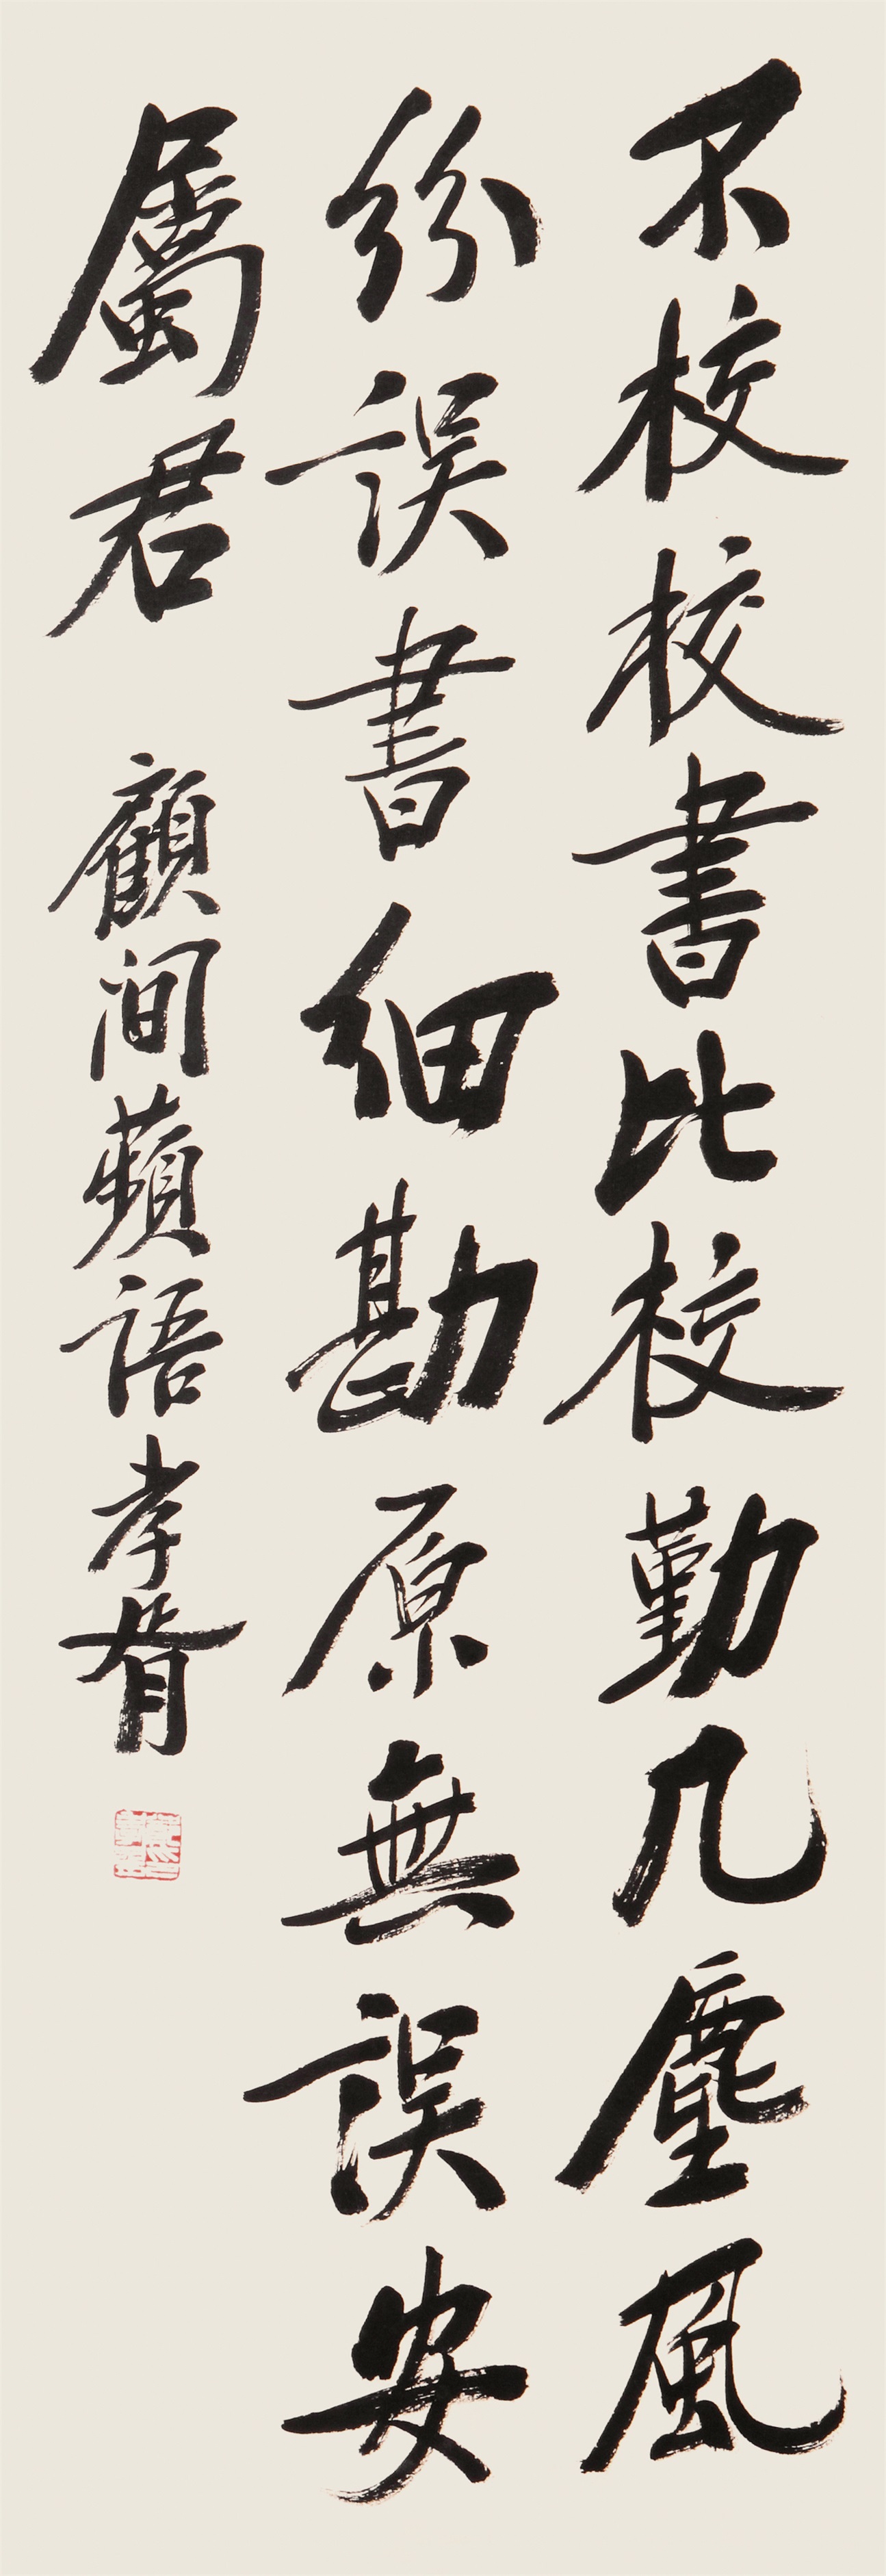 不校校書比校勤几塵風
紛誤書細勘原無誤安
屬君 顧澗蘋語孝胥